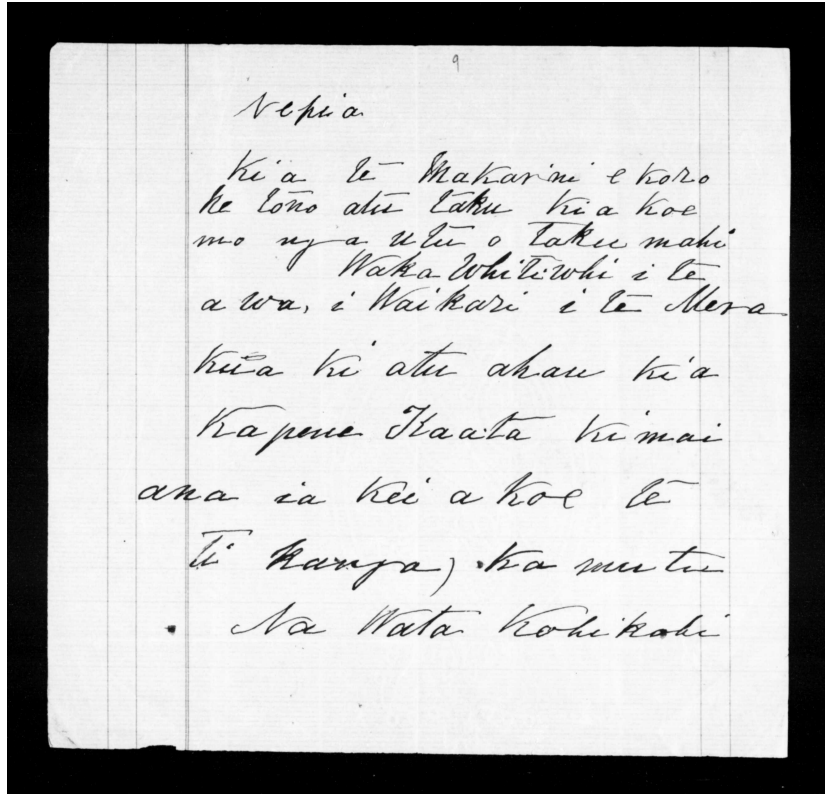 9
Nepia
Kia te Makarini e koro
he tono atu taku kia koe
mo nga utu o taku mahi
Waka Whitiwhi i te
awa, i Waikari i te Mera
Kua ki atu ahau kia
Kapene Kaata ki mai
ana ia Kei a Koe te
ti kanga) Ka mutu
Na Wata Kohikohi